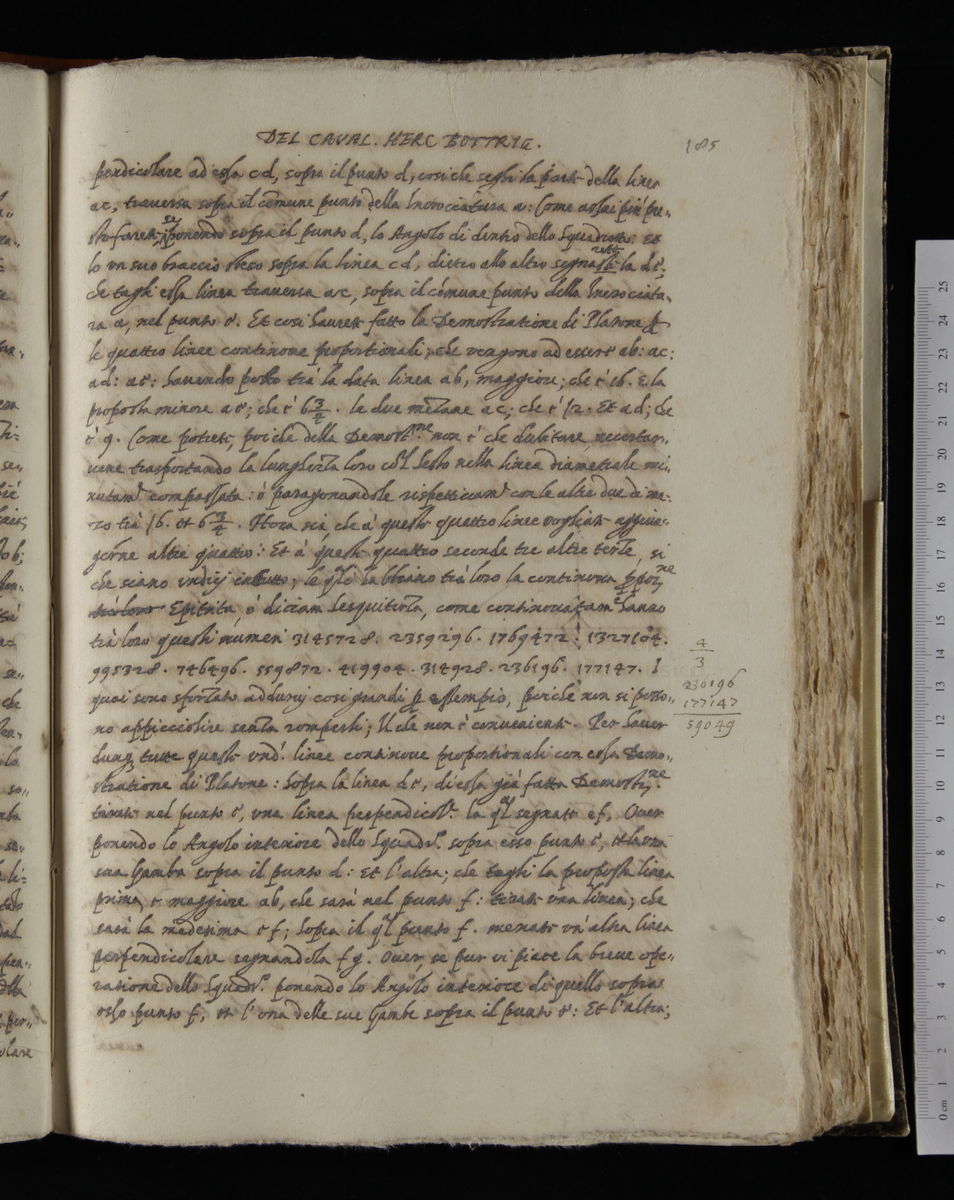 DEL CAVAL. HERC BOTTRIG.
185
pendicolare ad essa cd, sopra il punto d, cosi che seghi la parte della linea
ac, traversa sopra il comune punto della Incrocciatura a: Come assai piu pre-
sto farete, se ponendo sopra il punto d, lo Angolo di dentro dello Squadretto: Et
lo un suo braccio steso sopra la linea cd, dietro allo altro segnaste la de,
che tagli essa linea traversa ac, sopra il comune punto della Incrocciatu-
ra a, nel punto e. Et cosi haurete fatto la Demostratione di Platone
le quattro linee continove proportionali; che vengono ad essere ab: ac:
ad: ae: havendo posto trà la data linea ab, maggiore; che è 16. E la
proposta minore ae; che è 6 3/4. le due mezane ac; che è 12. Et ad; che
è 9. Come potrete, poi che della Demost.ne non è che dubitare, accertar-
vene trasportando la lunghezza loro col Sesto nella linea diametrale mi-
nutam.e compassata: ò paragonandole rispettivam.e con le altre due di me-
zo trà 16. et 6 3/4. Hora sia che à queste quattro linee vogliate aggiun-
gerne altre quattro: Et à queste quattro seconde tre altre terze, si
che siano undici in tutto; le q.li habbiano trà loro la continova ppor.ne
trà loro Epitrita, ò diciam Sesquiterza, come continovatam.e hanno
trà loro questi numeri 3145728. 2359296. 1769472. 1327104.
995328. 746496. 559872. 419904. 314928. 236196. 177147. I
quai sono sforzato addurvi cosi grandi p essempio, perche non si posso-
no appicciolire senza romperli; Il che non è conveniente. Per haver
dunq tutte queste und. linee continove proportionali con essa Demo-
stratione di Platone: Sopra la linea de, di essa già fatta Demostr.ne
tirate nel punto e, una linea perpendicol.e la q.l segnate ef, Over
ponendo lo Angolo interiore dello Squadr.o sopra esso punto e, et la una
sua Gamba sopra il punto d: Et l'altra; che tagli la proposta linea
prima, e maggiore ab, che sarà nel punto f: tirate una linea; che
sarà la medesima ef; Sopra il q.l punto f. menate un'altra linea
perpendicolare segnandola fg. Over se pur vi piace la breve ope-
ratione dello Squadr.o ponendo lo Angolo interiore di quello sopra
esso punto f, et l'una delle sue Gambe sopra il punto e: Et l'altra;
4
3
236196
177147
59049